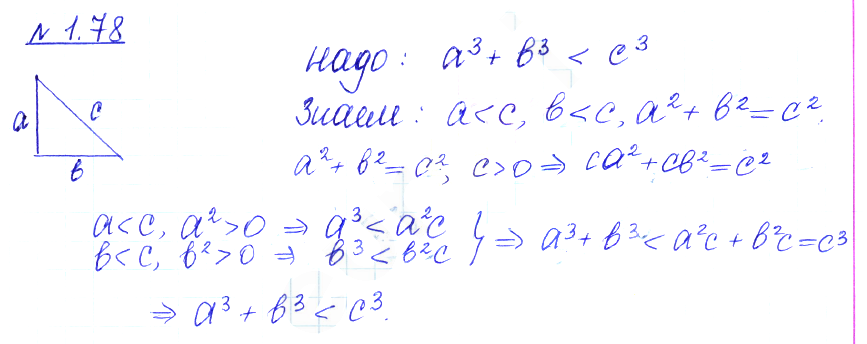 N 1.78
a
c
в
надо: a³ + в³ < c³
Знаем: a < c, в < c, a² + в² = c².
a² + в² = c², c > 0 ⇒ ca² + cв² = c²
a < c, a² > 0 ⇒ a³ < a²c
в < c, в² > 0 ⇒ в³ < в²c } ⇒ a³ + в³ < a²c + в²c = c³
⇒ a³ + в³ < c³.